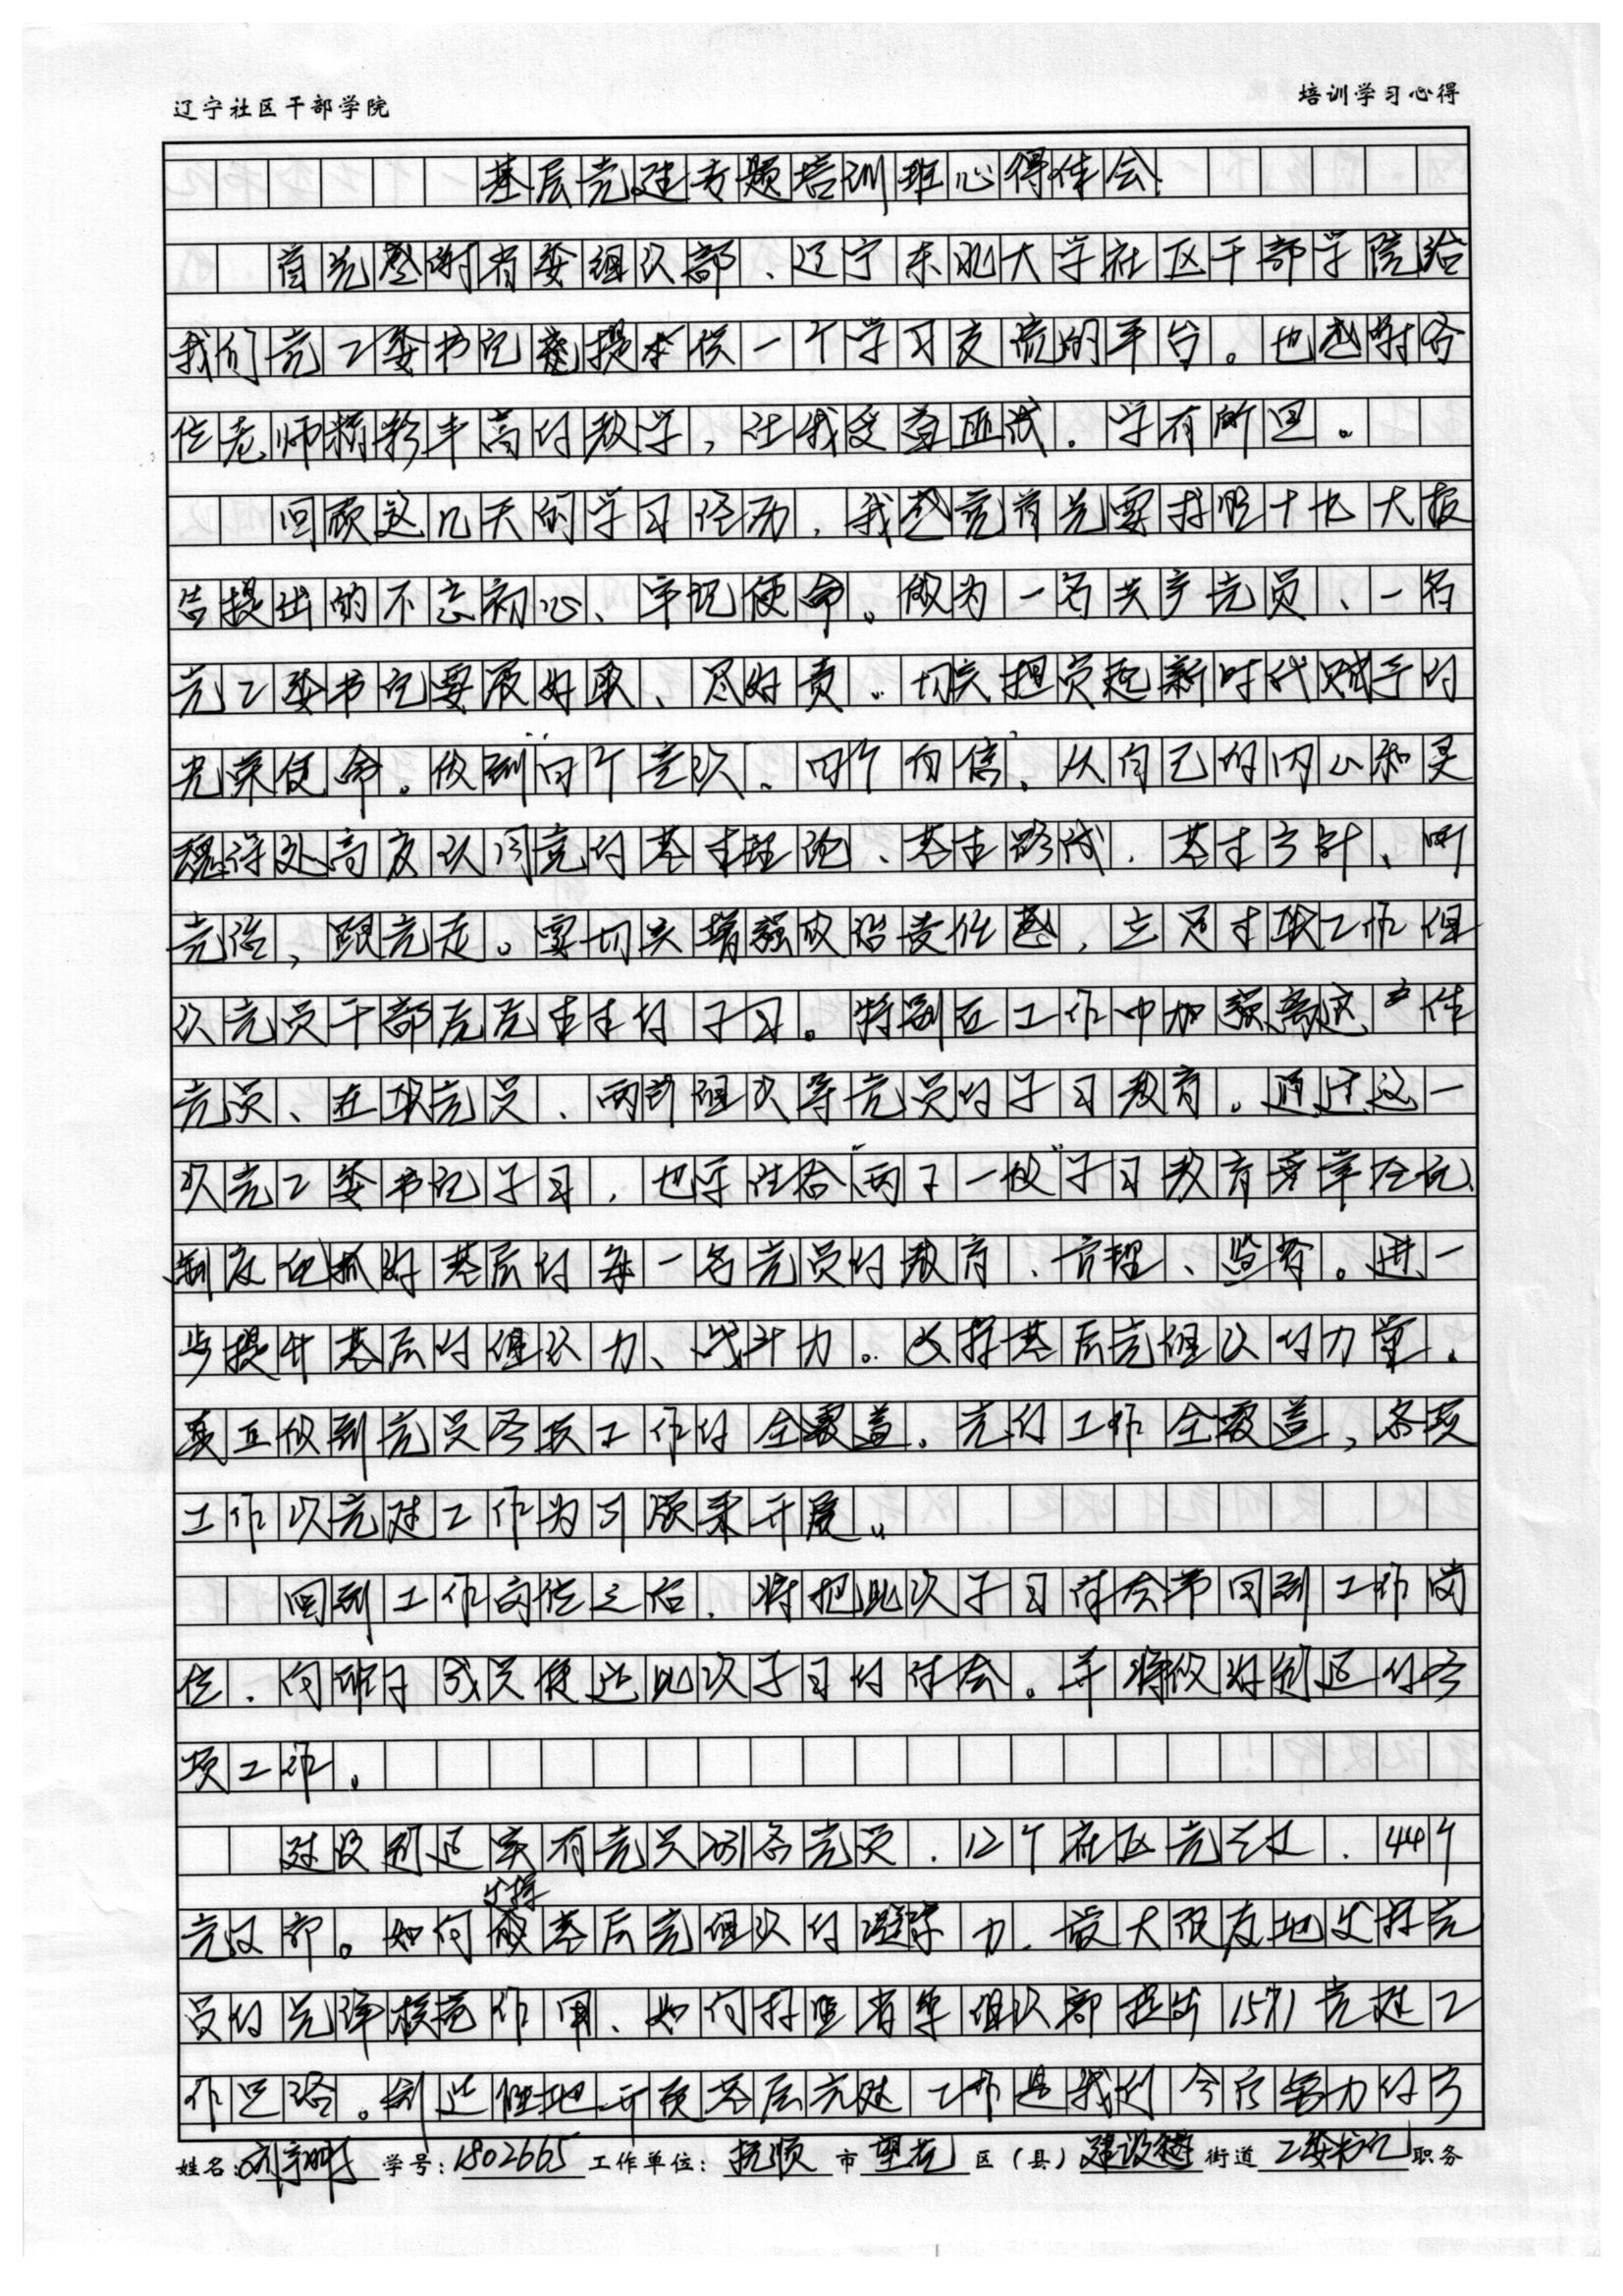 辽宁社区干部学院
培训学习心得
基层党建专题培训班心得体会
首先感谢省委组织部、辽宁东北大学社区干部学院给
我们党工委书记提供一个学习交流的平台。也感谢各
位老师精彩丰富的教学,让我受益匪浅.学有所思。
回顾这几天的学习经历,我感觉首先要按照十九大报
告提出的不忘初心、牢记使命。做为一名共产党员、一名
党工委书记要履好职、尽好责。切实担负起新时代赋予的
光荣使命。做到"四个意识、四个自信",从自己的内心和灵
魂深处高度认同党的基本理论、基本路线,基本方针、听
党话,跟党走。要切实增强政治责任感,立足本职工作组
织党员干部扎扎实实的学习。特别在工作中加强离退
党员、在职党员、两新组织等党员的学习教育。通过这一
次党工委书记学习,也学结合"两学一做"学习教育常
制度化抓好基层的每一名党员的教育、管理、监督。进一
步提升基层的组织力、战斗力。发挥基层党组织的力量.
真正做到党员各项工作的全覆盖。党的工作全覆盖,各项
工作以党建工作为引领来开展。
回到工作岗位之后.将把此次学习体会带回到工作岗
位.向班子成员传达此次学习的体会。并将做好街道的各
项工作。
建设街道实有党员 名党员.12个社区党 .44个
党支部。如何发挥基层党组织的凝聚力.最大限度地发挥党
员的先锋模范作用、如何按照省委组织部提出1571党建工
作思路。创造性地开展基层党建工作是我们今后努力的方
姓名: 学号:1802665 工作单位:抚顺市望花区(县)建设街道工委书记职务